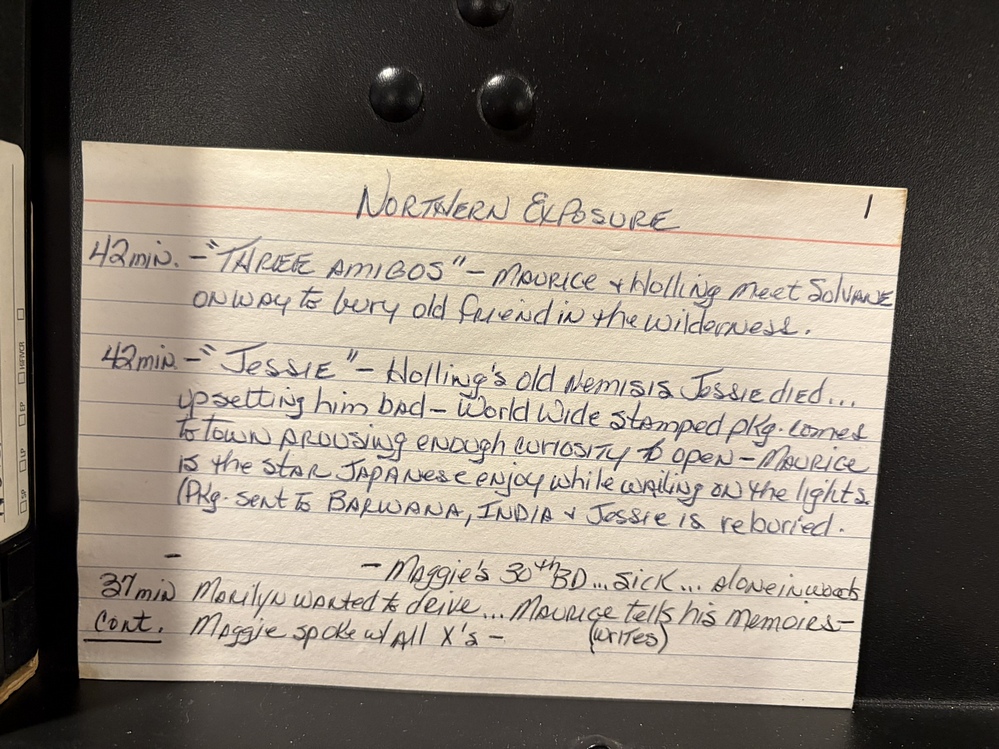 NORTHERN EXPOSURE 1
42min. - "THREE AMIGOS" - MAURICE + Holling meet SOLVANE
ON WAY to bury old friend in the wilderness.
42min. - "JESSIE" - Holling's old NEMISIS JESSIE DIED...
upsetting him bad - World Wide stamped pkg. comes
To TOWN AROUSING enough curiosity to open - MAURICE
is the STAR JAPANESE enjoy while waiting on the lights.
(Pkg. sent to BARWANA, INDIA + Jessie is reburied.
- Maggie's 30th BD... sick... alone in woods
37min Marilyn wanted to drive... MAURICE tells his memoirs -
Cont. Maggie spoke w/ All X's - (writes)
SP LP EP HIFIVCR